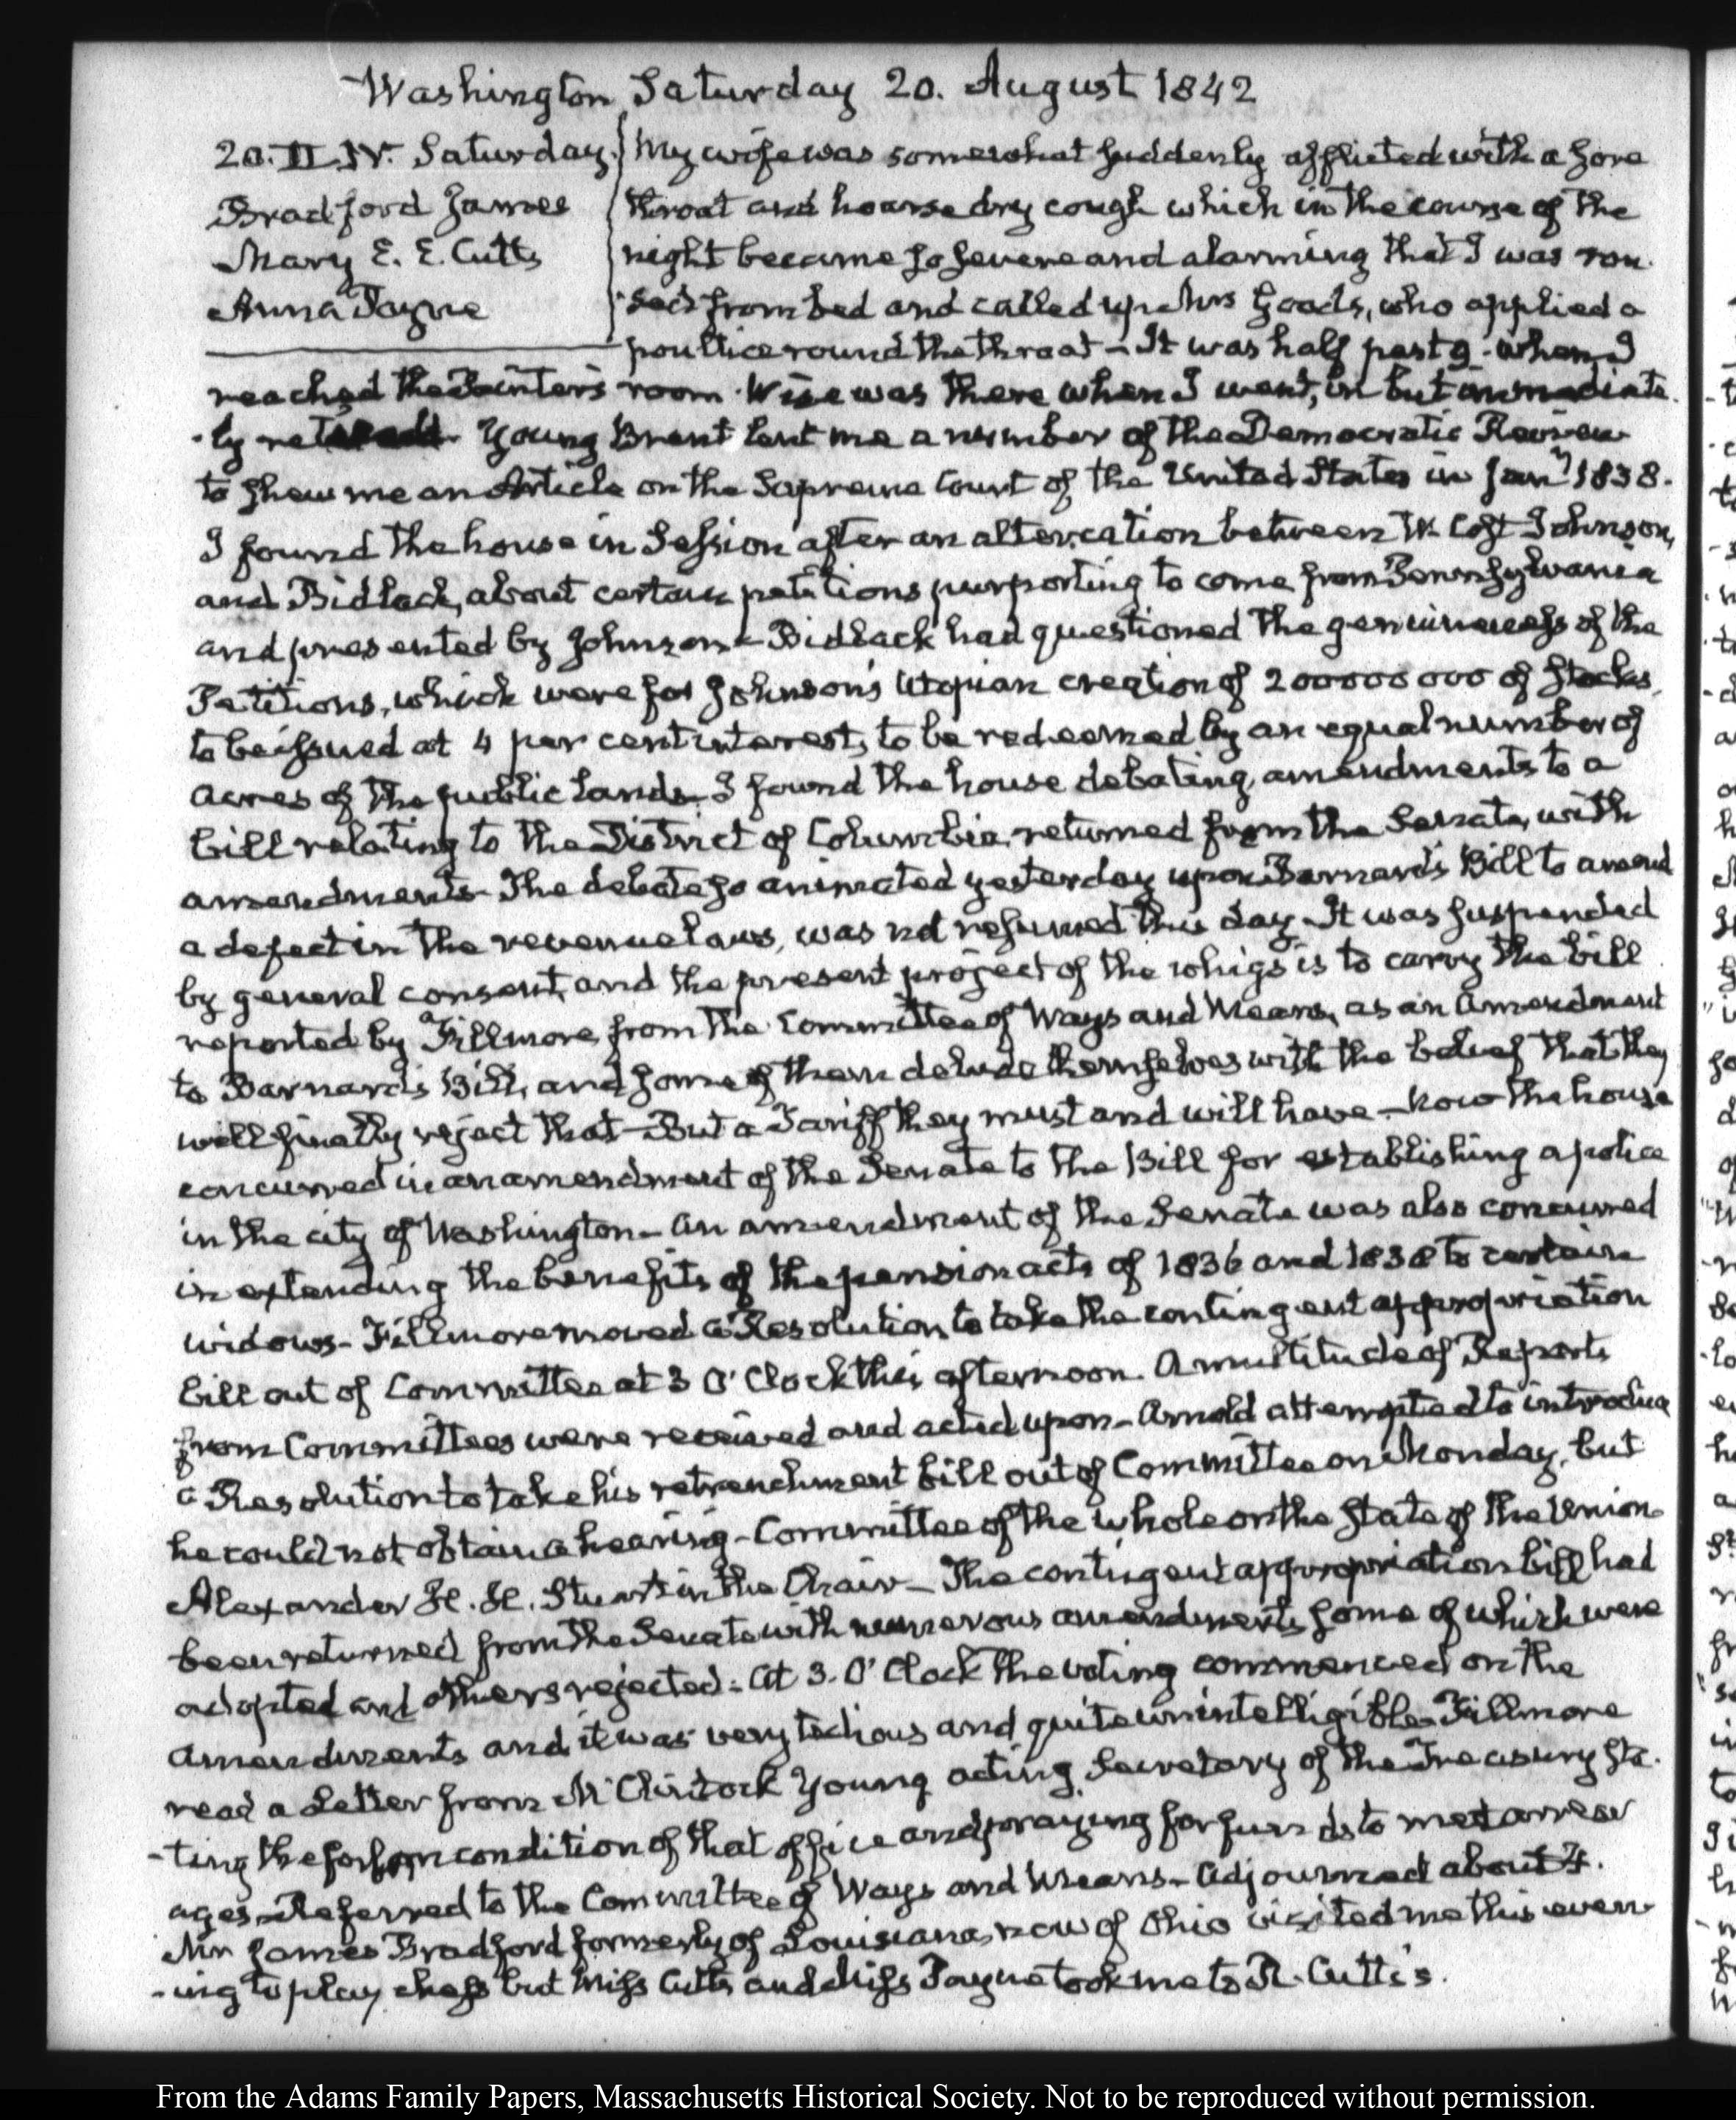 Washington Saturday 20. August 1842
20. II. IV. Saturday.
Bradford James
Mary E. E. Cutts
Anna Payne
My wife was somewhat suddenly afflicted with a sore
throat and hoarse dry cough which in the course of the
night became so severe and alarming that I was rou-
-sed from bed and called up Mrs Goods, who applied a
poultice round the throat – It was half past 9. when I
reached the Painter's room. Wise was there when I went, in but immediate-
-ly Young Brent lent me a number of the Democratic Review
to shew me an Article on the Supreme Court of the United States in Jany 1838.
I found the house in Session after an altercation between W. Cost Johnson,
and Bidlack, about certain petitions purporting to come from Pennsylvania
and presented by Johnson – Bidlack had questioned the genuineness of the
Petitions, which were for Johnson's Utopian creation of 200000000 of Stocks,
to be issued at 4 per cent interest, to be redeemed by an equal number of
acres of the public lands – I found the house debating, amendments to a
bill relating to the District of Columbia, returned from the Senate, with
amendments – The debate so animated yesterday upon Barnard's Bill to amend
a defect in the revenue laws, was not resumed this day – It was suspended
by general consent, and the present project of the whigs is to carry the bill
reported by Fillmore, from the Committee of Ways and Means, as an Amendment
to Barnard's Bill, and some of them delude themselves with the belief that they
will finally reject that – But a Tariff they must and will have – Now the house
concurred in an amendment of the Senate to the Bill for establishing a police
in the city of Washington – An amendment of the Senate was also concurred
in extending the benefits of the pension acts of 1836 and 1838 to certain
widows – Fillmore moved a Resolution to take the contingent appropriation
bill out of Committee at 3 O'Clock this afternoon. A multitude of Reports
from Committees were received and acted upon – Arnold attempted to introduce
a Resolution to take his retrenchment bill out of Committee on Monday, but
he could not obtain a hearing – Committee of the whole on the State of the Union
Alexander H. H. Stuart in the Chair – The contingent appropriation bill had
been returned from the Senate with numerous amendments some of which were
adopted and others rejected: At 3. O'Clock the voting commenced on the
amendments and it was very tedious and quite unintelligible – Fillmore
read a Letter from McClintock Young acting Secretary of the Treasury sta-
-ting the forlorn condition of that office and praying for funds to meet arrear-
ages – Referred to the Committee of Ways and Means – Adjourned about 4.
Mr James Bradford formerly of Louisiana, now of Ohio visited me this even-
-ing to play chess but Miss Cutts and Miss Payne took me to R. Cutts's.
From the Adams Family Papers, Massachusetts Historical Society. Not to be reproduced without permission.